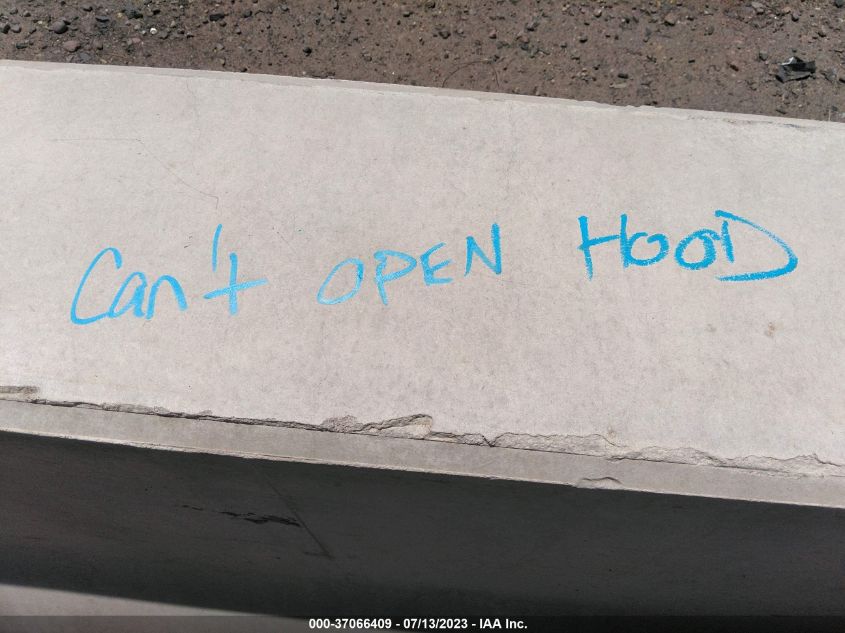 Can't OPEN HOOD
000-37066409 - 07/13/2023 - IAA Inc.